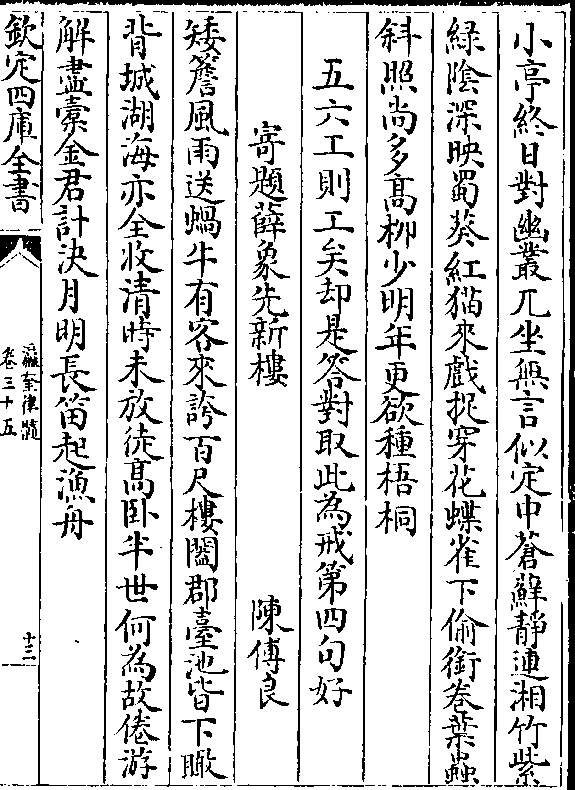 小亭終日對幽叢兀坐無言似定中蒼蘚靜連湘竹紫
綠陰深映蜀葵紅猫來戲捉穿花蝶雀下偷銜卷葉蟲
斜照尚多髙柳少明年更欲種梧桐
五六工則工矣却是答對取此為戒第四句好
寄題薛象先新樓 陳傅良
矮簷風雨送蝸牛有客來誇百尺樓闔郡臺池皆下瞰
背城湖海亦全收清時未放徒髙卧半世何為故倦游
解盡橐金君計決月明長笛起漁舟
欽定四庫全書
瀛奎律髓
卷三十五
十三